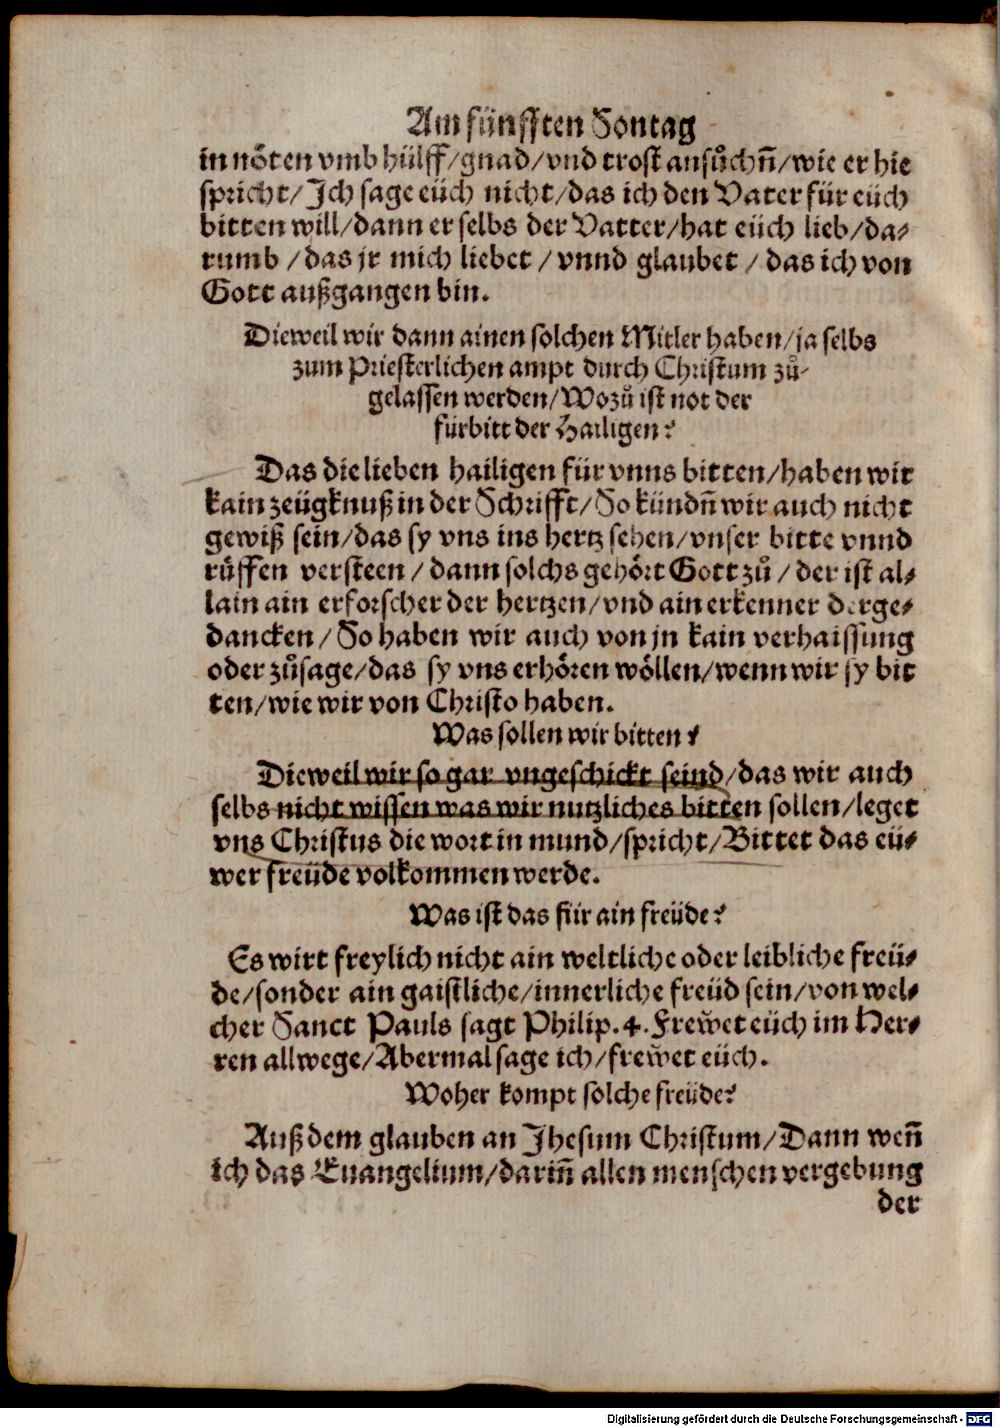 Am fünfften Sontag
in nöten vmb hülff/gnad/vnd trost ansůchn̄/wie er hie
spricht/Ich sage eüch nicht/das ich den Vater für eüch
bitten will/dann er selbs der Vatter/hat eüch lieb/da-
rumb /das jr mich liebet / vnnd glaubet / das ich von
Gott außgangen bin.
Dieweil wir dann ainen solchen Mitler haben/ja selbs
zum Priesterlichen ampt durch Christum zů-
gelassen werden/Wozů ist not der
fürbitt der Hailigen?
Das die lieben hailigen für vnns bitten/haben wir
kain zeügknuß in der Schrifft/So kündn̄ wir auch nicht
gewiß sein/das sy vns ins hertz sehen/vnser bitte vnnd
rüffen versteen / dann solchs gehört Gott zů / der ist al-
lain ain erforscher der hertzen/vnd ain erkenner der ge-
dancken/ So haben wir auch von jn kain verhaissung
oder zůsage/das sy vns erhören wöllen/wenn wir sy bit
ten/wie wir von Christo haben.
Was sollen wir bitten?
Dieweil wir so gar vngeschickt seind/das wir auch
selbs nicht wissen was wir nutzliches bitten sollen/leget
vns Christus die wort in mund/spricht/Bittet das eü-
wer freüde volkommen werde.
Was ist das für ain freüde?
Es wirt freylich nicht ain weltliche oder leibliche freü-
de/sonder ain gaistliche/innerliche freüd sein/von wel-
cher Sanct Pauls sagt Philip.4. Frewet eüch im Her-
ren allwege/Abermal sage ich/frewet eüch.
Woher kompt solche freüde?
Auß dem glauben an Jhesum Christum/Dann wen̄
ich das Euangelium/darin̄ allen menschen vergebung
der
Digitalisierung gefördert durch die Deutsche Forschungsgemeinschaft - DFG